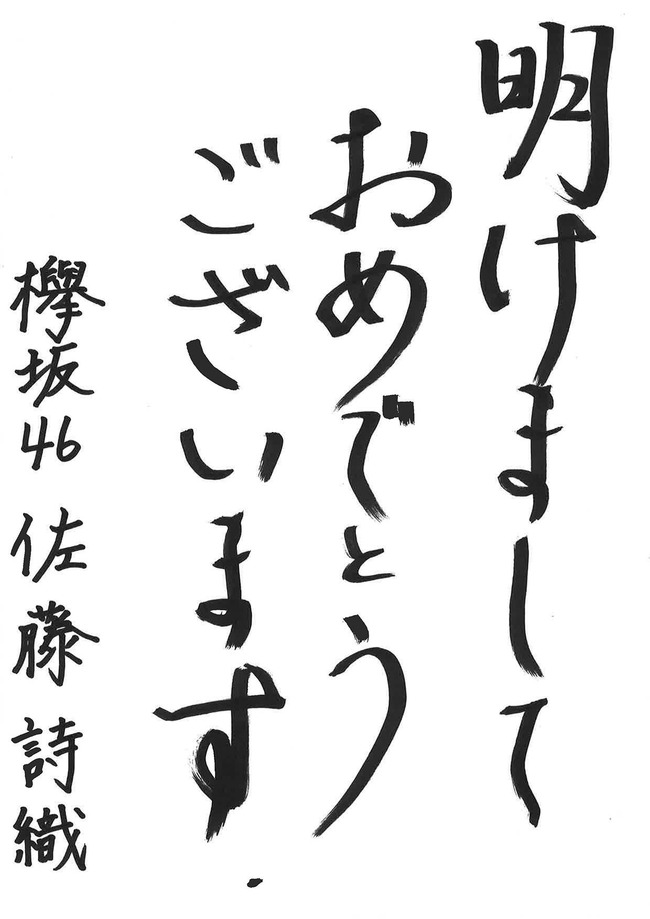 明けまして
おめでとう
ございます.
欅坂46 佐藤 詩織